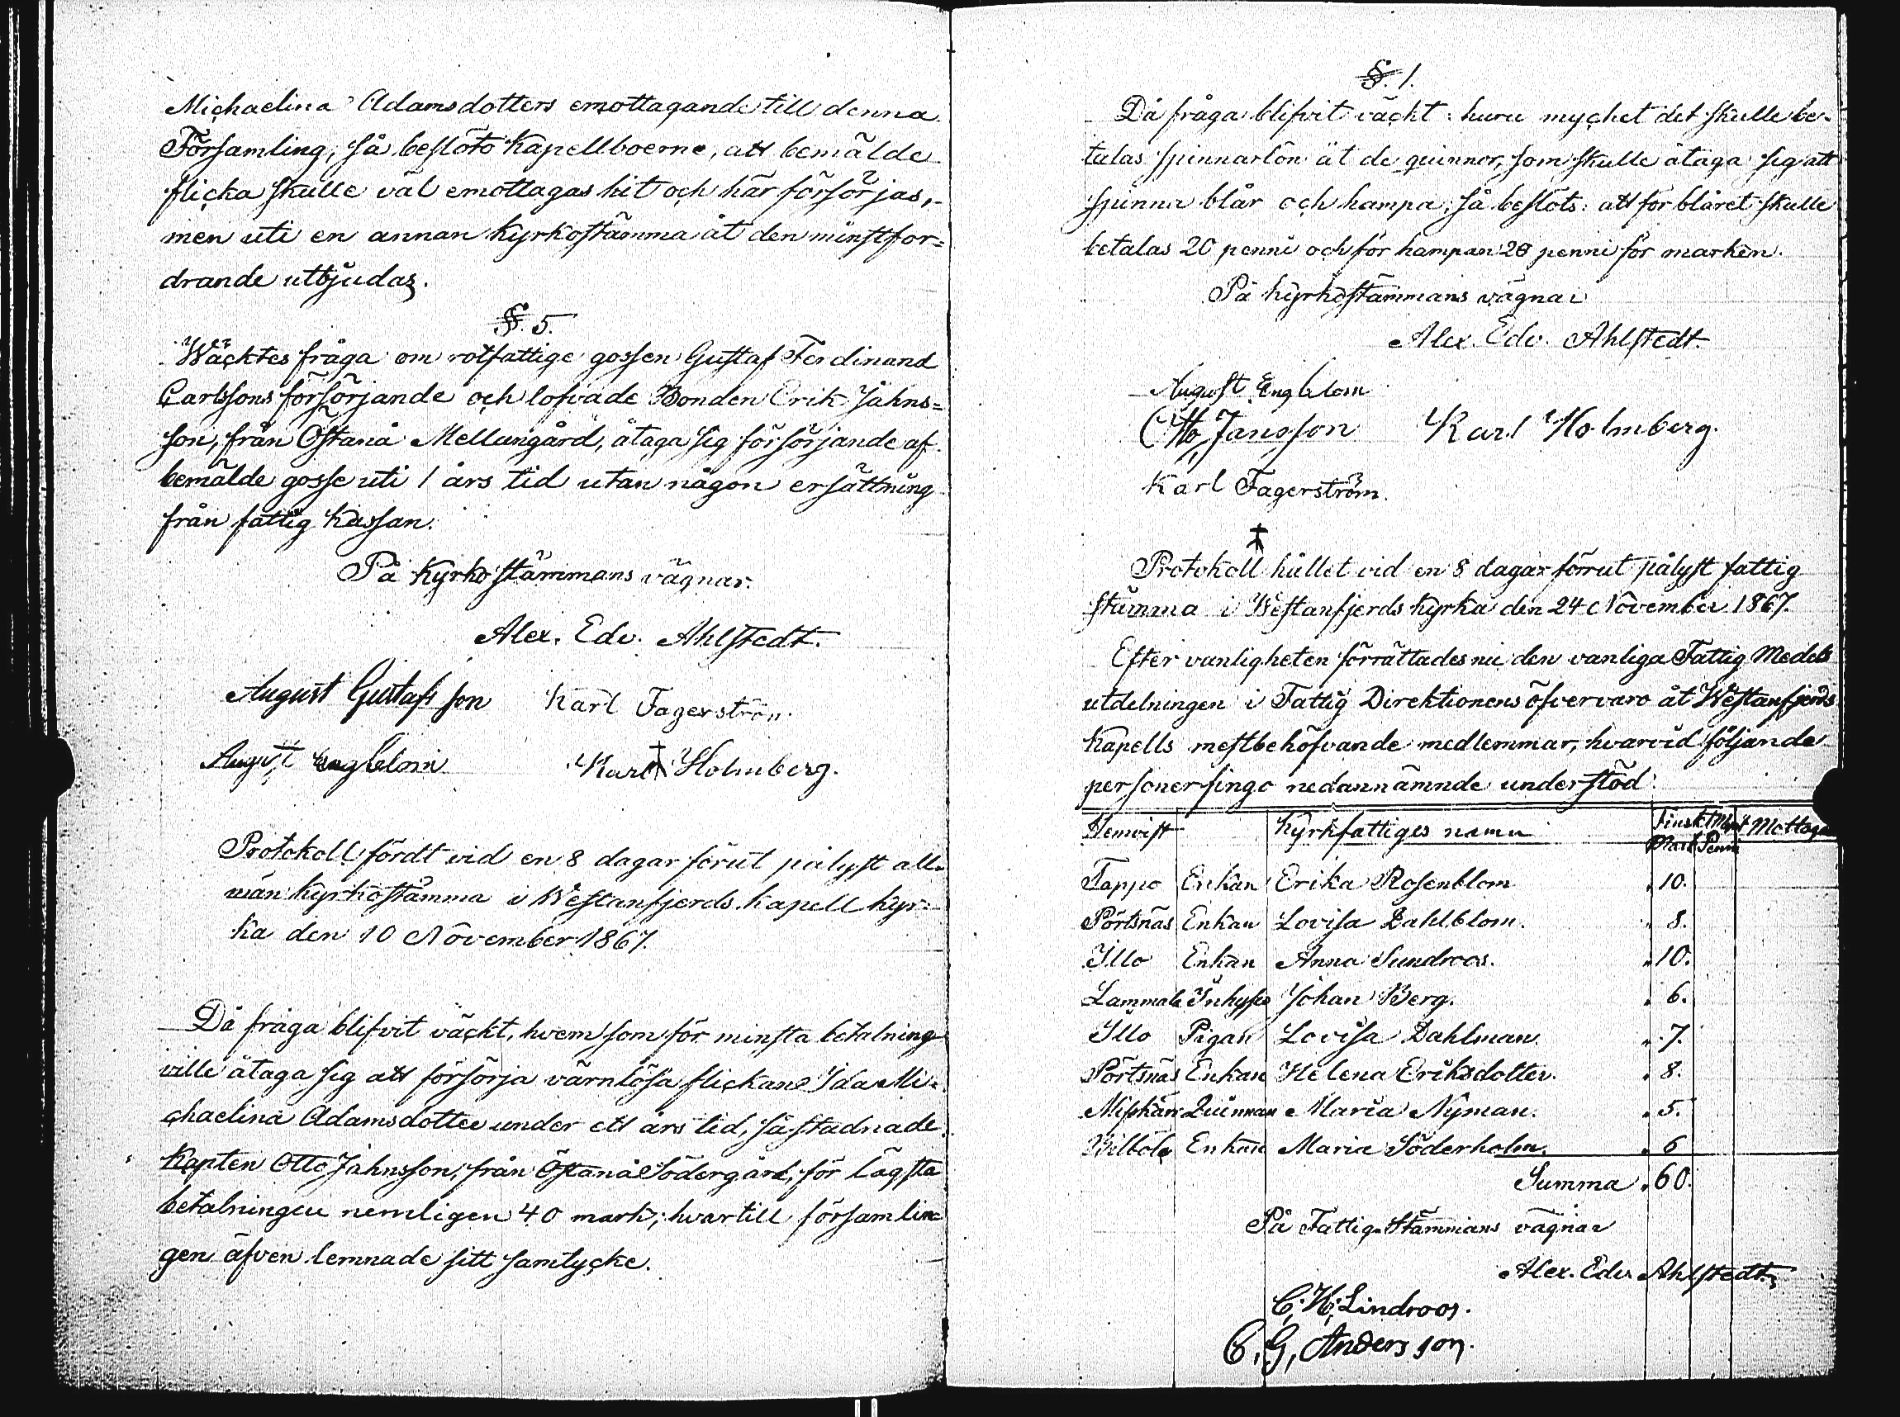 Michaelina Adamsdotters emottagande till denna
Församling, så beslöto Kapellboerne, att bemälde
flicka skulle väl emottagas hit och här försörjas,
men uti en annan Kyrkostämma åt den minstfor=
drande utbjudas.
§. 5.
Wäcktes fråga om rotfattige gossen Gustaf Ferdinand
Carlssons försörjande och lofvade Bonden Erik Jahns=
son, från Östanå Mellangård, åtaga sig försörjande af
bemälde gosse uti 1 års tid utan någon ersättning
från fattig Kassan.
På Kyrkostämmans vägnar.
Alex. Edv. Ahlstedt.
August Gustafsson Karl Fagerström.
August Engblom Karl Holmberg.
Protokoll fördt vid en 8 dagar förut pålyst all=
män Kyrkostämma i Westanfjerds Kapell Kyr=
ka den 10 November 1867.
Då fråga blifvit väckt, hvem som för minsta betalning
ville åtaga sig att försörja värnlösa flickan Ida Mi=
chaelina Adamsdotter under ett års tid, så stadnade
Kapten Otto Jahnsson, från Östanå Södergård, för lägsta
betalningen nemligen 40 mark; hvartill församlin=
gen äfven lemnade sitt samtycke.
§. 1.
Då fråga blifvit väckt: huru mycket det skulle be=
talas spinnarlön åt de qvinnor, som skulle åtaga sig att
spinna blår och hampa; så beslöts: att för blåret skulle
betalas 20 penni och för hampan 28 penni för marken.
På Kyrkostämmans vägnar
Alex. Edv. Ahlstedt.
August Engblom
Otto Jansson Karl Holmberg.
Karl Fagerström.
Protokoll hållet vid en 8 dagar förrut pålyst fattig
stämma i Westanfjerds Kyrka den 24 November 1867.
Efter vanligheten förrättades nu den vanliga Fattig Medels
utdelningen i Fattig Direktionens öfvervaro åt Westanfjerds
Kapells mestbehöfvande medlemmar, hvarvid följande
personer fingo nedannämnde understöd:
Hemvist Kyrkfattiges namn Finskt Mynt Mottaga
Mark Penni
Tappo Enkan Erika Rosenblom " 10.
Pörtsnäs Enkan Lovisa Dahlblom. " 8.
Illo Enkan Anna Sundroos. " 10.
Lammala Inhyses Johan Berg. " 6.
Illo Pigan Lovisa Dahlman. " 7.
Pörtsnäs Enkan Helena Eriksdotter. " 8.
Misskärr Quinnan Maria Nyman. " 5.
Billböle Enkan Maria Söderholm. " 6
Summa " 60.
På Fattig Stämmans vägnar
Alex. Edv. Ahlstedt.
C. H. Lindroos.
C. G. Andersson.